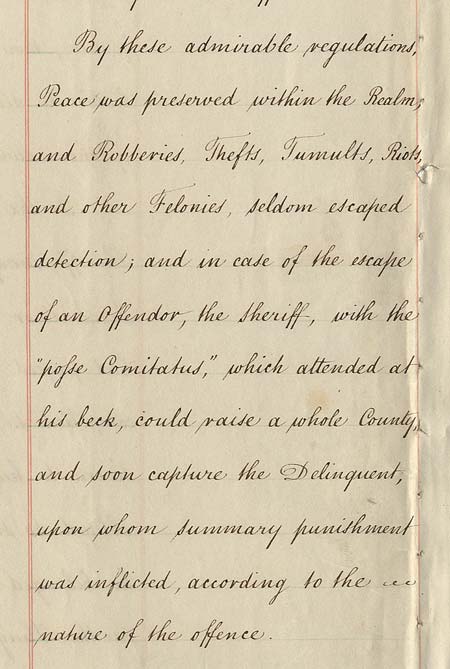 By these admirable regulations,
Peace was preserved within the Realm;
and Robberies, Thefts, Tumults, Riots,
and other Felonies, seldom escaped
detection; and in case of the escape
of an Offendor, the Sheriff, with the
"poſse Comitatus," which attended at
his beck, could raise a whole County,
and soon capture the Delinquent,
upon whom summary punishment
was inflicted, according to the
nature of the offence.